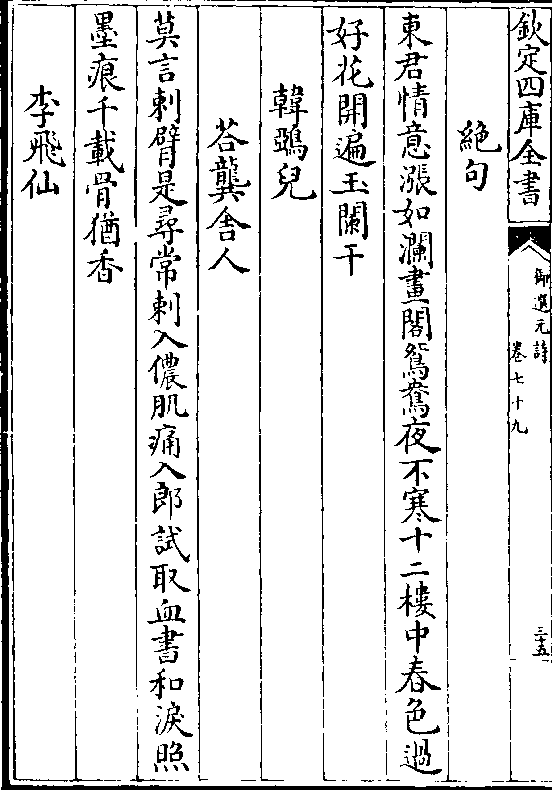 欽定四庫全書
御選元詩
卷七十九
三十五
絕句
東君情意漲如瀾畫閣鴛鴦夜不寒十二樓中春色過
好花開遍玉闌干
韓鵶兒
荅龔舍人
莫言刺臂是尋常刺入儂肌痛入郎試取血書和淚照
墨痕千載骨猶香
李飛仙